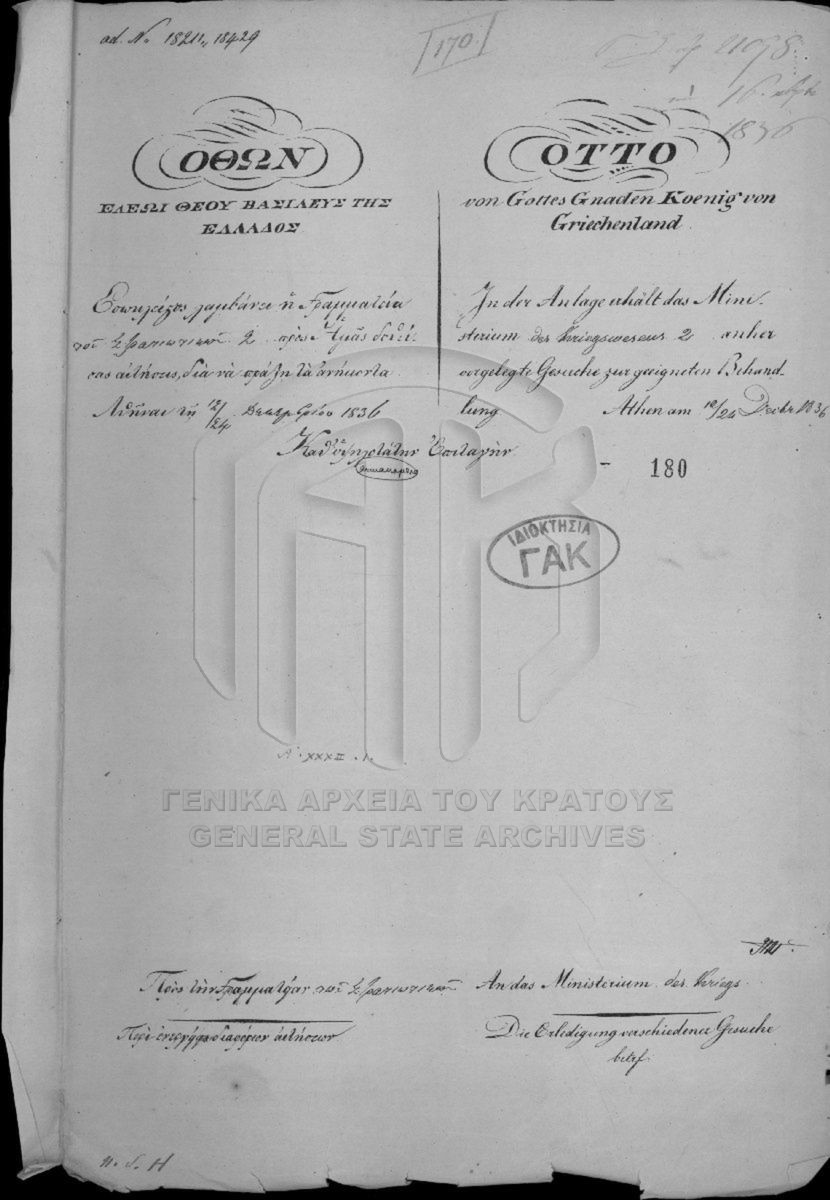 ad. No 18211, 18429
170.
16
1836
ΟΘΩΝ
ΕΛΕΩΙ ΘΕΟΥ ΒΑΣΙΛΕΥΣ ΤΗΣ
ΕΛΛΑΔΟΣ
Ἐσωκλείστως λαμβάνει ἡ Γραμματεία
τοῦ Στρατιωτικοῦ 2 πρὸς Ἡμᾶς δοθεί-
σας αἰτήσεις, διὰ νὰ πράξῃ τὰ ἀνήκοντα
Ἀθῆναι τῇ 12/24 Δεκεμβρίου 1836
OTTO
von Gottes Gnaden Koenig von
Griechenland.
In der Anlage erhält das Mini-
sterium des Kriegswesens 2 anher
vorgelegte Gesuche zur geeigneten Behand-
lung. Athen am 12/24 Decbr 1836
Καθ' ὑψηλοτάτην Ἐπιταγήν
- 180
ΙΔΙΟΚΤΗΣΙΑ
ΓΑΚ
XXXII . 1.
ΓΕΝΙΚΑ ΑΡΧΕΙΑ ΤΟΥ ΚΡΑΤΟΥΣ
GENERAL STATE ARCHIVES
Πρὸς τὴν Γραμματείαν τοῦ Στρατιωτικοῦ
Περὶ διαφόρων αἰτήσεων
An das Ministerium des Kriegs.
Die Erledigung verschiedener Gesuche
betrf.